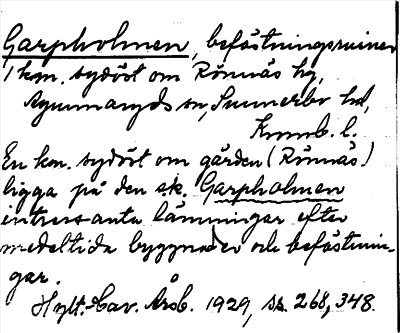 Garpholmen, befästningsruiner
1 km. sydöst om Rönnäs by,
Agunnaryds sn, Sunnerbo hd,
Kronb. l.
En km. sydöst om gården (Rönnäs)
ligga på den s.k. Garpholmen
intressanta lämningar efter
medeltida byggnader och befästnin-
gar.
Hylt.-Cav. Årsb. 1929, ss. 268, 348.